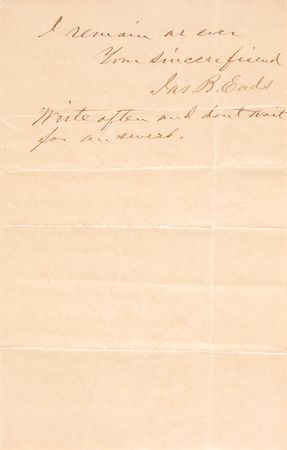 I remain as ever
Your sincere friend
Jas. B. Eads
Write often and dont wait
for answers.